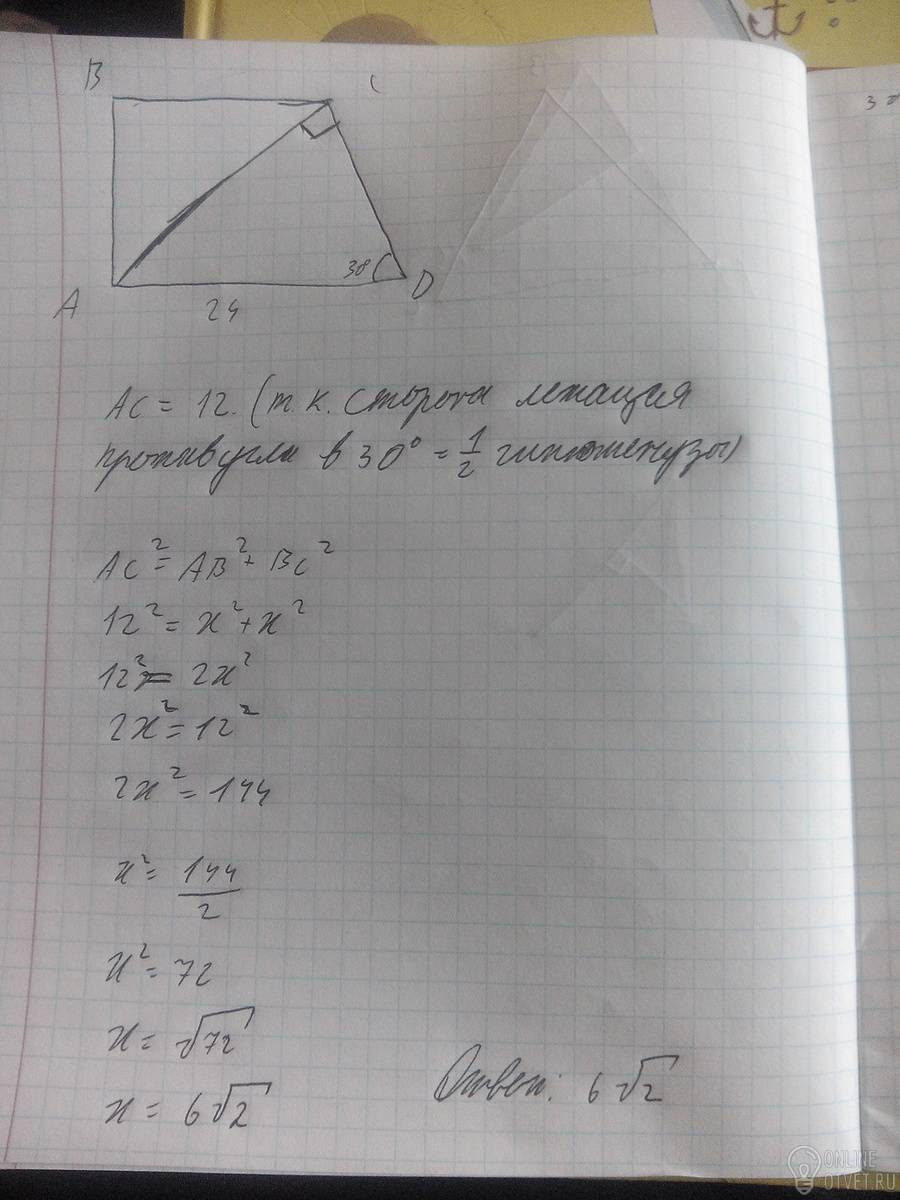 B C
30°
A 24 D
AC = 12. (т.к. сторона лежащая
против угла в 30° = 1/2 гипотенузы)
AC² = AB² + BC²
12² = x² + x²
12² = 2x²
2x² = 12²
2x² = 144
x² = 144/2
x² = 72
x = √72
x = 6√2 Ответ: 6√2
ONLINE
OTVET.RU